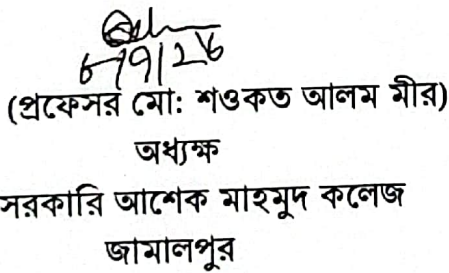 (প্রফেসর মো: শওকত আলম মীর)
অধ্যক্ষ
সরকারি আশেক মাহমুদ কলেজ
জামালপুর